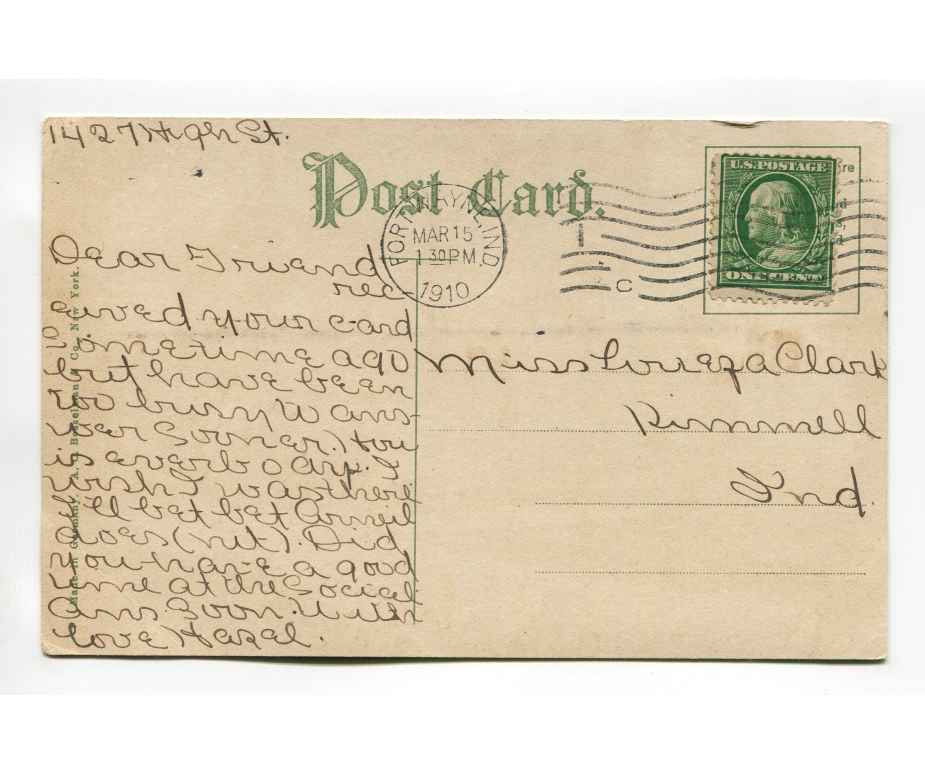 1427 High St.
Post Card.
FORT WAYNE, IND.
MAR 15
1 30 PM
1910
C
U.S. POSTAGE
ONE CENT
Dear Friend
rec
eived your card
sometime ago
but have been
too busy to ans-
wer sooner. How
is everbody. I
wish I was there
I'll bet bet
does (nit). Did
you have a good
time at the Social
Ans soon. With
love Hazel.
Miss Clark
Kimmell
Ind.
Made in Germany. New York.